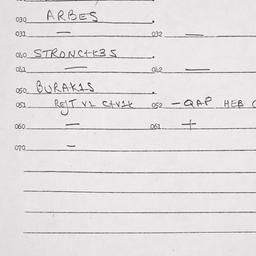 030 ARBES
031 — 032 —
040 STRONCTK3S
041 — 042 —
050 BURAK1S
051 REJT VL CTVIK 052 - QAP HEB
060 = 061 +
070 -